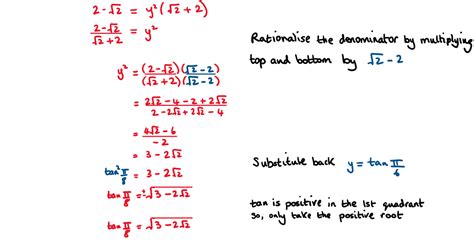 2-√2 = y²(√2+2)
2-√2/√2+2 = y²
Rationalise the denominator by multiplying
top and bottom by √2-2
y² = (2-√2)(√2-2)/(√2+2)(√2-2)
= 2√2-4-2+2√2/2-2√2+2√2-4
= 4√2-6/-2
= 3-2√2
Substitute back y=tan π/6
tan² π/8 = 3-2√2
tan π/8 = ±√3-2√2
tan is positive in the 1st quadrant
so, only take the positive root
tan π/8 = √3-2√2